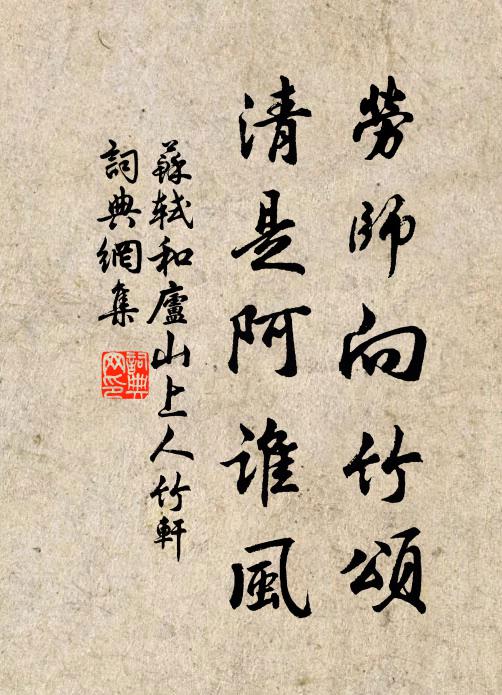 勞師向竹頌
清是阿誰風
蘇軾和廬山上人竹軒
詞典網集
詞典網印